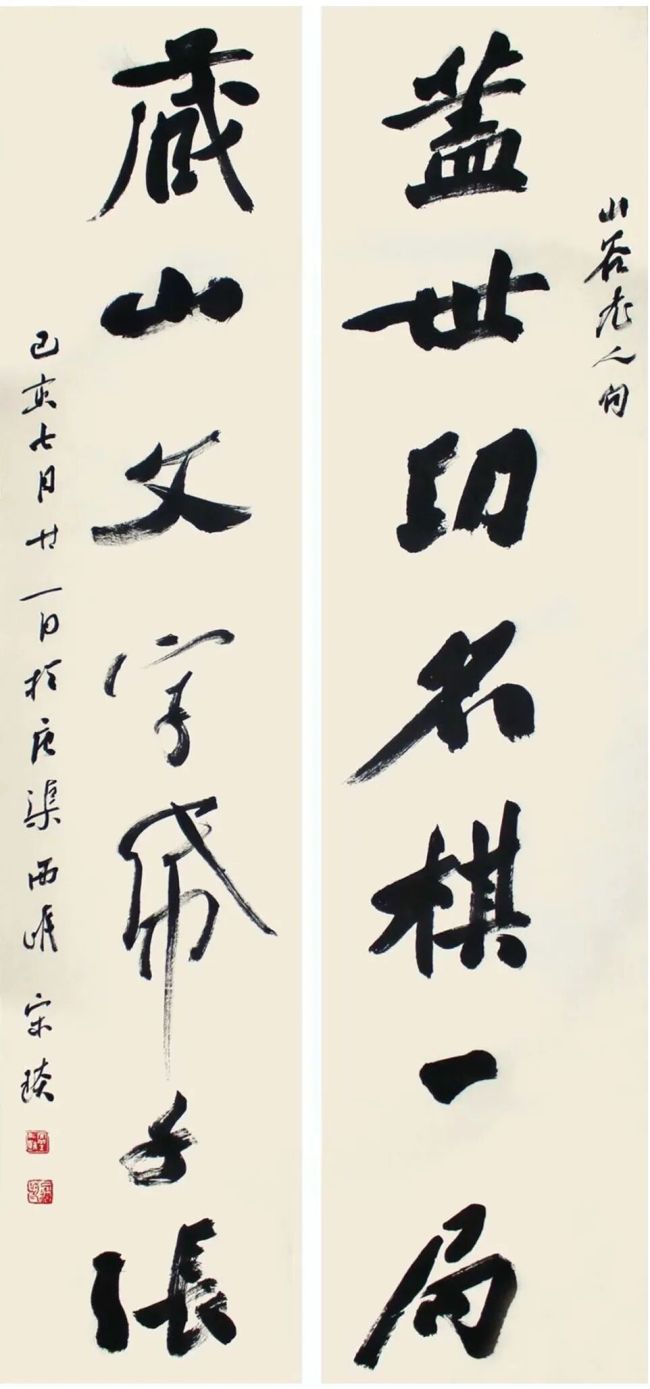 山谷老人句
蓋世功名棋一局
藏山文字帋千張
己亥七月廿一日於唐渠西 宋琰